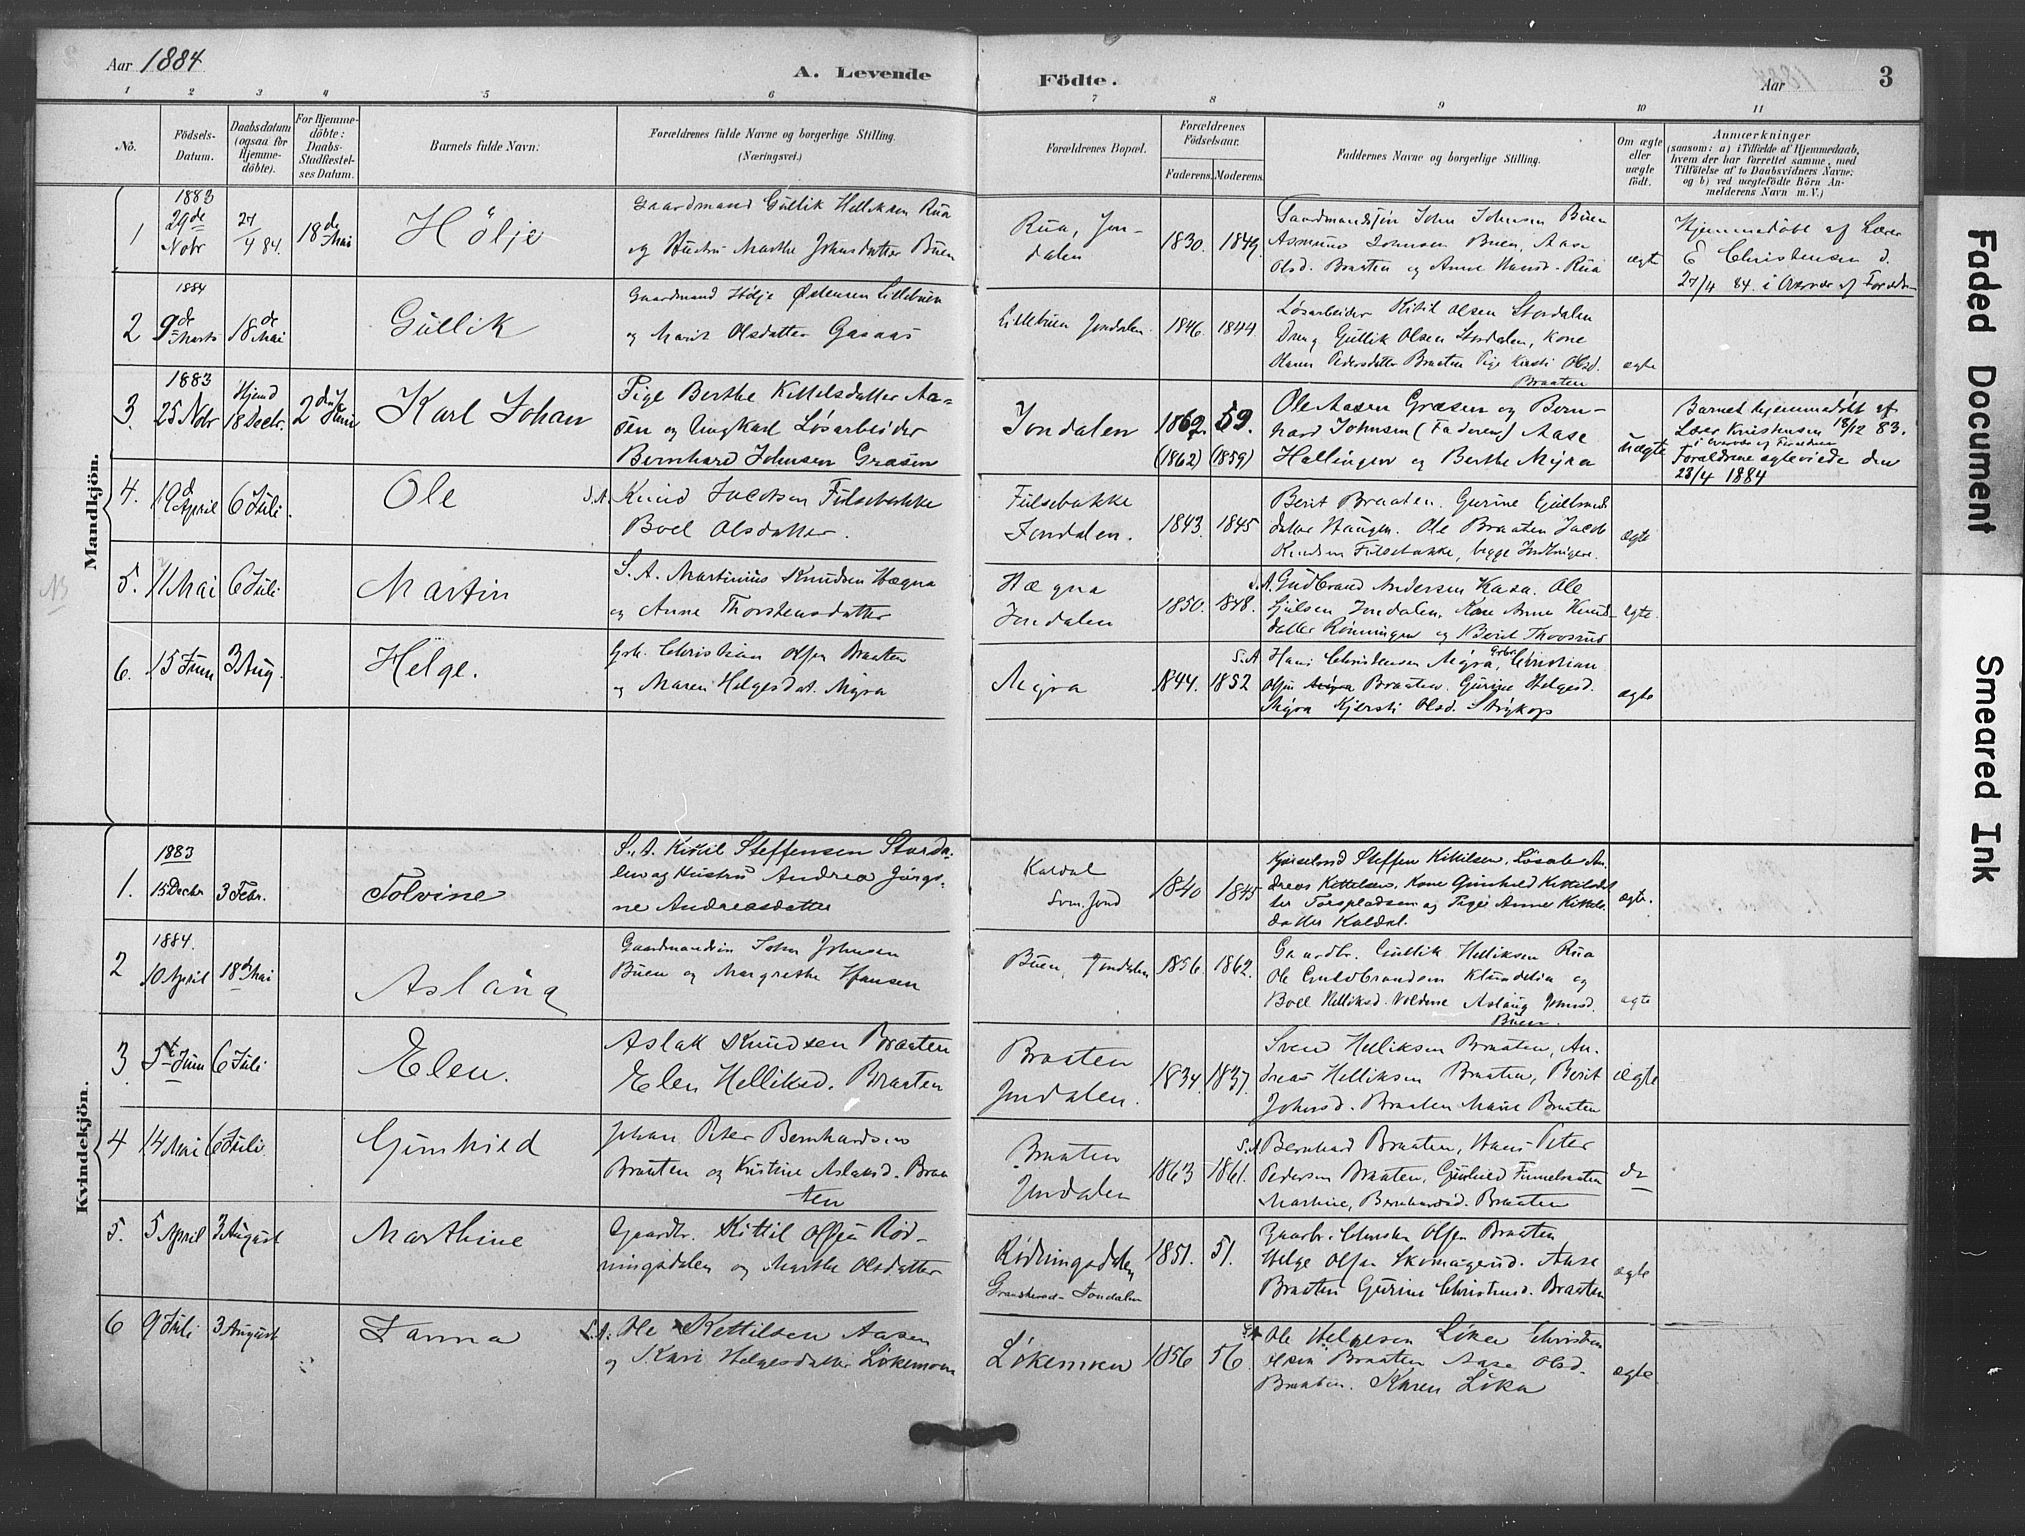 Aar 1884
A. Levende
Födte.
Aar
3
1 2 3 4 5 6 7 8 9 10 11
No.
Födsels-Datum.
Daabsdatum (ogsaa for Hjemme-döbte).
For Hjemme-döbte: Daabs-Stadfæstel-ses Datum.
Barnets fulde Navn.
Forældrenes fulde Navne og borgerlige Stilling.
(Næringsvei.)
Forældrenes Bopæl.
Forældrenes Födselsaar.
Faderens. Moderens.
Faddernes Navne og borgerlige Stilling.
Om ægte eller uægte födt.
Anmærkninger
(saasom: a) i Tilfælde af Hjemmedaab,
hvem der har forrettet samme, med
Tilföielse af to Daabsvidners Navne;
og b) ved uægtefödte Börn An-
melderens Navn m. V.)
Mandkjön.
1 1883 29de Novbr 27/4 84. 18de Mai Hölje
Gaardmand Gullik Helliksen Rua
og Hustru Marthe Johnsdatter Buen
Rua, Jon-
dalen
1830. 1849.
Gaardmandssøn John Johnsen Buen
Asmund Johnsen Buen, Aase
Olsd. Braaten og Anne Hansd. Rua
ægte
Hjemmedöbt af Lærer
E Christensen d.
27/4 84. i Overvær af Forældr
2 1884 9de Marts 18de Mai Gullik
Gaardmand Hölje Østensen Lillebuen
og Marit Olsdatter Gaaas
Lillebuen Jondalen.
1846. 1844.
Løsarbeider Kittil Olsen Stordalen
Dreng Gullik Olsen Stordalen, Kone
Maren Pedersdatter Braaten Pige Kirsti Olsd.
Braaten
ægte
3. 1883 25 Novbr Hjemd 18 Decbr. 2den Juni Karl Johan
Pige Berthe Kittelsdatter Aa-
sen og Ungkarl Løsarbeider
Bernhard Johnsen Græsen
Jondalen
1862. 59.
(1862) (1859)
Ole Aasen Græsen og Bern-
hard Johnsen (Faderen) Aase
Hallingen og Berthe Myra
uægte
Barnet hjemmedöbt af
Lærer Kristensen 18/12 83.
i Overvær af Forældrene
Forældrene ægteviede den
23/4 1884
4. 19d April 6 Juli. Ole
S.A. Knud Jacobsen Fulsebakke
Boel Olsdatter.
Fulsebakke
Jondalen.
1843. 1845
Berit Braaten. Gurine Gulbrands
datter Haugen. Ole Braaten Jacob
Knudsen Fulsebakke, begge Inderster.
ægte
5. 11 Mai 6 Juli Martin
S. A. Martinius Knudsen Hægna
og Anne Thorstensdatter
Hægna
Jondalen
1850. 1848.
S.A. Gudbrand Andersen Kasa. Ole
Gjulsen Jondalen, Kone Anne Knuds-
datter Rønningen og Berit Thovsrud
ægte.
6. 15 Juni 3 Aug. Helge.
Grbr. Christian Olsen Braaten
og Maren Helgesdat. Myra
Myra
1844. 1852
S.A Hans Christensen Myra, Grbr Christian
Olsen Myra Braaten. Gurine Helgesd.
Myra Kjersti Olsd. Strykop
ægte
NB
Kvindekjön.
1. 1883 15 Decbr 3 Febr. Tolvine
S. A. Kittil Steffensen Storda-
len og Hustru Andrea Jörgi-
ne Andreasdatter
Kaldal
1840 1845
Steffen Kittilsen, Løsarb An-
dreas Kittelsen. Kone Gunhild Kittilsdat
ter Torspladsen og Pige Anne Kittels-
datter Kaldal.
ægte.
2 1884. 10 April 18de Mai Aslaug
Gaardmandssøn John Johnsen
Buen og Margrethe Hansen
Buen, Jondalen
1856. 1862.
Gaardbr. Gullik Helliksen Rua
Ole Guldbrandsen Klundelia og
Boel Helliksd. Voldene Aslaug Jonsd.
Buen.
ægte
3. 5te Juni 6 Juli Elen.
Aslak Knudsen Braaten
Elen Helliksd. Braaten
Braaten
Jondalen.
1834. 1837.
Svend Helliksen Braaten, An-
dreas Helliksen Braaten, Berit
Johnsd. Braaten Marie Braaten
ægte
4 14 Mai 6 Juli. Gunhild
Johan Peter Bernhardsen
Braaten og Kristine Aslaksd. Braa
ten
Braaten
Jondalen
1863 1861.
S.A Bernhard Braaten, Hans Peter
Pedersen Braaten, Gunhild
Martine, Bernhardsd. Braaten
do
5. 5 April 3 August Marthine
Gaardbr. Kittil Olsen Rød-
ningsdalen og Marthe Olsdatter
Rødningsdalen
Gransherad- Jondalen
1851. 51.
Gaarbr. Christen Olsen Braaten
Helge Olsen Skomagerud. Aase
Braaten Gurine Christensd. Braaten
ægte
6 9 Juli 3 August Hanna
S.A. Ole Kettilsen Aasen
og Kari Helgesdatter Løkemoen
Løkemoen
1856 56.
S.A Ole Helgesen Løka Christian
Olsen Braaten Aase Olsd.
Braaten. Karen Løka
ægte
Faded Document
Smeared Ink